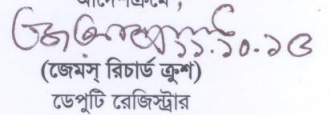 ১১.১০.১৩
(জেমস্ রিচার্ড ক্রুশ)
ডেপুটি রেজিস্ট্রার